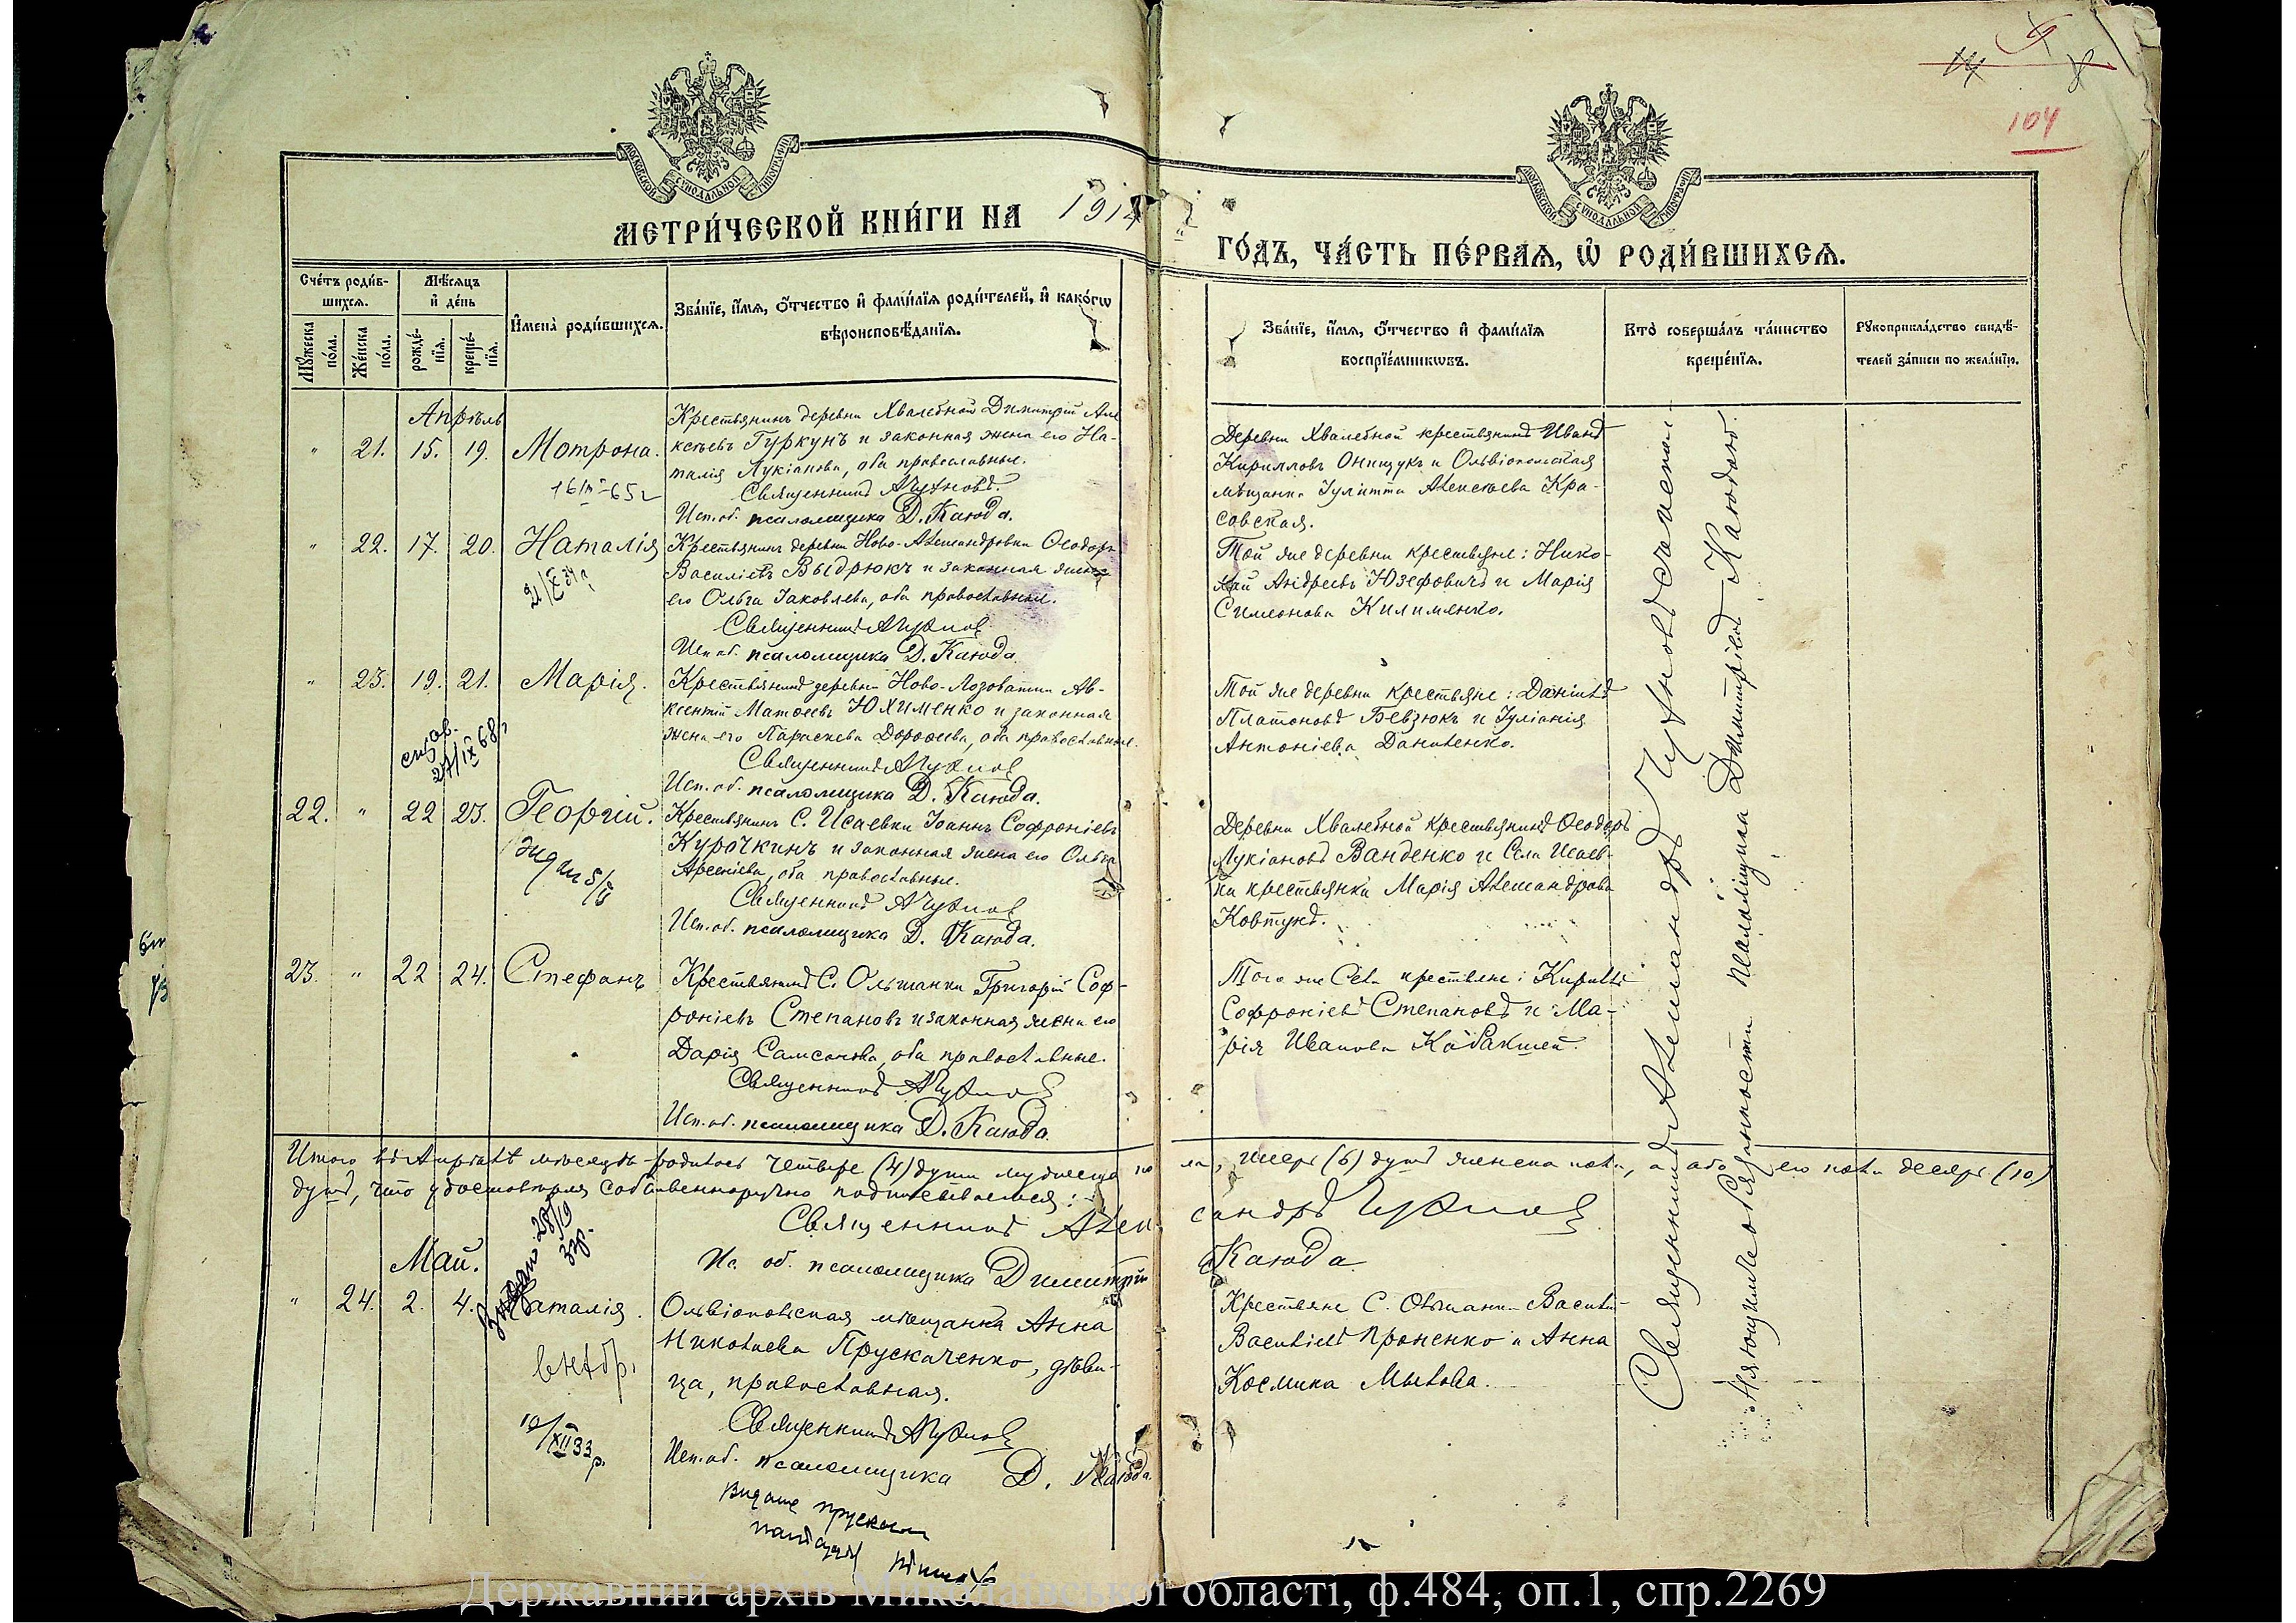 104
МОСКОВСКОЙ СѴНОДАЛЬНОЙ ТИПОГРАФІИ
МОСКОВСКОЙ СѴНОДАЛЬНОЙ ТИПОГРАФІИ
МЕТРИ́ЧЕСКОЙ КНИ́ГИ НА 191
ГО́ДЪ, ЧА́СТЬ ПЕ́РВАѦ, Ѡ҆ РОДИ́ВШИХСѦ.
Сче́тъ роди́в-
шихсѧ.
Мꙋ́жеска по́ла.
Же́нска по́ла.
Мѣ́сѧцъ
и҆ де́нь
рожде́-
нїѧ.
креще́-
нїѧ.
И҆мена̀ роди́вшихсѧ.
Зва́нїе, и҆́мѧ, о҆́тчество и҆ фами́лїѧ роди́телей, и҆ како́гѡ
вѣроисповѣ́данїѧ.
Зва́нїе, и҆́мѧ, о҆́тчество и҆ фами́лїѧ
воспрїе́мникѡвъ.
Кто̀ соверша́лъ та́инство
креще́нїѧ.
Рꙋкоприкла́дство свидѣ́-
телей за́писи по жела́нїю.
Апрѣль
" 21. 15. 19. Мотрона.
Крестьянинъ деревни Хвалебной Димитрій Але
ксѣевъ Гуркунъ и законная жена его На-
талія Лукіанова, оба православные.
Священникъ АЧужновъ.
Исп. об. псаломщика Д. Каюда.
Деревни Хвалебной крестьянинъ Иванъ
Кирилловъ Онищукъ и Ольвіопольская
мѣщанка Іулитта Алексѣева Кра-
совская.
" 22. 17. 20. Наталія
Крестьянинъ деревни Ново-Александровки Ѳеодоръ
Василіевъ Выдрюкъ и законная жена
его Ольга Іаковлева, оба православные.
Священникъ
Исп. об. псаломщика Д. Каюда.
Той же деревни крестьяне: Нико-
лай Андреевъ Юзефовичъ и Марія
Симеонова Килименко.
" 23. 19. 21. Марія.
Крестьянинъ деревни Ново-Лозоватки Ав-
ксентій Матѳеевъ Юхименко и законная
жена его Параскева Дороѳеева, оба православные.
Священникъ
Исп. об. псаломщика Д. Каюда.
Той же деревни крестьяне: Даніилъ
Платоновъ Бевзюкъ и Іуліанія
Антоніева Даниленко.
22. " 22 23. Георгій.
Крестьянинъ С. Исаевки Іоаннъ Софроніевъ
Курочкинъ и законная жена его Ольга
Арсеніева, оба православные.
Священникъ
Исп. об. псаломщика Д. Каюда.
Деревни Хвалебной крестьянинъ Ѳеодоръ
Лукіановъ Ванденко и Села Исаев-
ки крестьянка Марія Александрова
Ковтунъ.
23. " 22 24. Стефанъ
Крестьянинъ С. Ольшанки Григорій Соф-
роніевъ Степановъ и законная жена его
Дарія Самсонова, оба православные.
Священникъ
Исп. об. псаломщика Д. Каюда.
Того же Села крестьяне: Кириллъ
Софроніевъ Степановъ и Ма-
рія Иванова Кабакшей.
Итого въ Апрѣлѣ мѣсяцѣ родилось четверо (4) души мужеска по ла, шесть (6) душъ женска пола, а обо его пола десять (10)
душъ, что удостовѣряя собственноручно подписываемся:
Священникъ Алек сандръ
Ис. об. псаломщика Димитрій Каюда
Май.
" 24. 2. 4. Наталія.
Ольвіопольская мѣщанка Анна
Николаева Прускаченко, дѣви-
ца, православная.
Священникъ
Исп. об. псаломщика Д. Каюда.
Крестьяне С. Ольшанки Василій
Василіевъ Проненко и Анна
Космина Мылова.
внебр.
10/XII 33 р.
Священникъ Александръ
псаломщика Димитрій Каюда.
Державний архів Миколаївської області, ф.484, оп.1, спр.2269